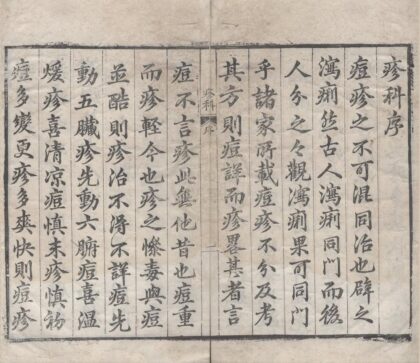 疹科序
痘疹之不可混同治也辟之
瀉痢然古人瀉痢同門而後
人分之々觀瀉痢果可同門
乎諸家所載痘疹不分及考
其方則痘詳而疹畧甚者言
疹科 序 一
痘不言疹此無他昔也痘重
而疹輕今也疹之慘毒與痘
並酷則疹治不得不詳痘先
動五臟疹先動六腑痘喜溫
煖疹喜清凉痘慎末疹慎初
痘多變更疹多爽快則痘疹